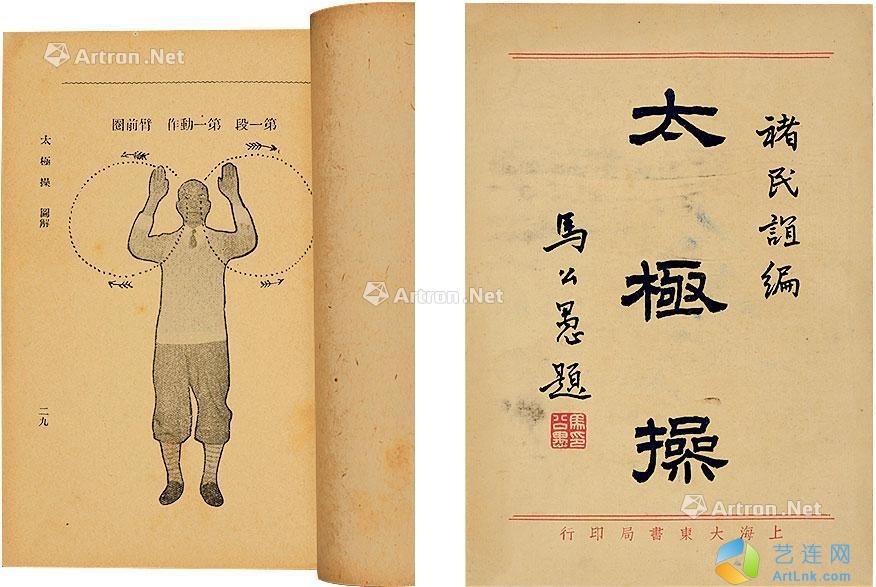 第一段 第一動作 臂前圈
太極操 圖解
二九
褚民誼編
太極操
馬公愚題
馬公愚印
上海大東書局印行
Artron.Net
Artron.Net
Artron.Net
艺连网
ArtLnk.com